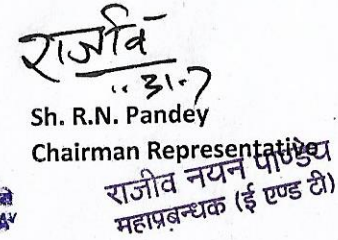 राजीव
31.7
Sh. R.N. Pandey
Chairman Representative
राजीव नयन पाण्डेय
महाप्रबन्धक (ई एण्ड टी)